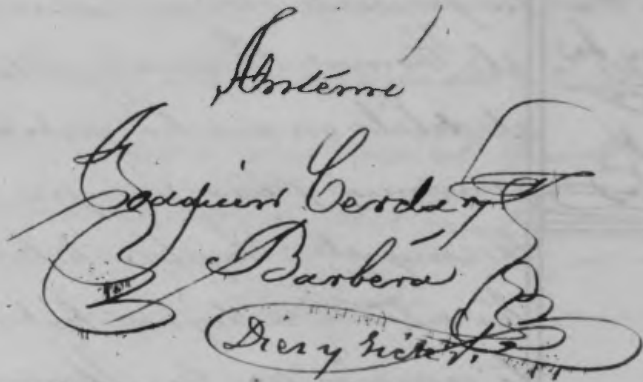 Antémi
Joaquin Cerdá y
Barberá
Diez y siete